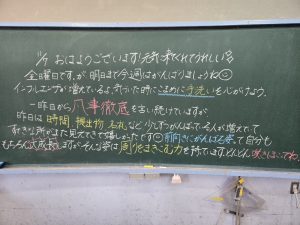 11/9 おはようございます!元気に来てくれてうれしいな
金曜日ですが、明日まで今週はがんばりましょうね☺
インフルエンザが増えているよ。気付いた時にこまめに手洗いを心がけよう。
一昨日から凡事徹底を言い続けていますが
昨日は時間、提出物、名札など少しずつがんばっている人が増えていて
すてきな所がまた見えてきて嬉しかったです☺前向きにがんばる姿って自分も
もちろん成長しますがそんな姿は周りをまきこむ力を持っています。どんどん